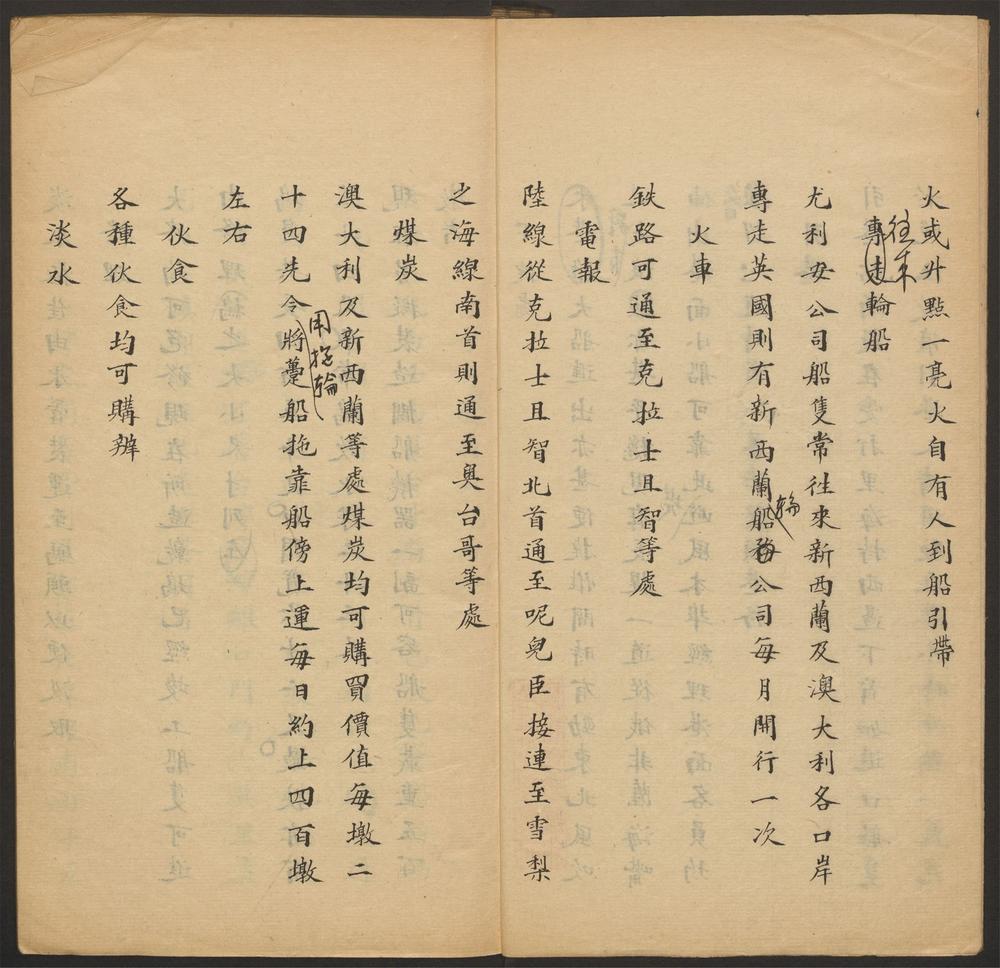 火或升點一亮火自有人到船引帶
往來
專走輪船
尤利安公司船隻常往來新西蘭及澳大利各口岸
專走英國則有新西蘭船務公司每月開行一次
輪
火車
鉄路可通至克拉士且智等處
電報
陸線從克拉士且智北首通至呢兒臣接連至雪梨
之海線南首則通至奧台哥等處
煤炭
澳大利及新西蘭等處煤炭均可購買價值每墩二
十四先令將躉船拖靠船傍上運每日約上四百墩
用拖輪
左右
伙食
各種伙食均可購辦
淡水